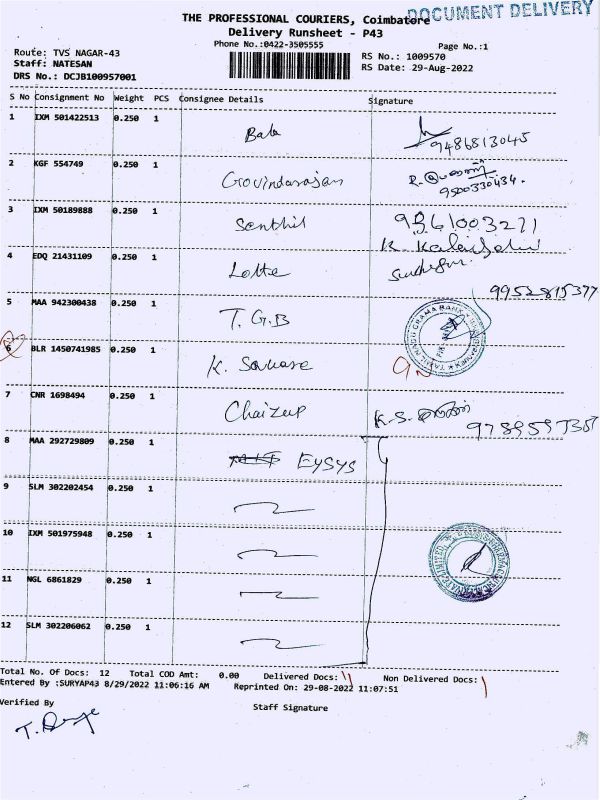 DOCUMENT DELIVERY
THE PROFESSIONAL COURIERS, Coimbatore
Delivery Runsheet - P43
Phone No.:0422-3505555
Page No.:1
Route: TVS NAGAR-43
RS No.: 1009570
Staff: NATESAN
RS Date: 29-Aug-2022
DRS No.: DCJB100957001
S No Consignment No Weight PCS Consignee Details Signature
1 IXM 501422513 0.250 1 Bala 9486813045
2 KGF 554749 0.250 1 Govindarajan R. 9500330434.
3 IXM 50189888 0.250 1 Senthil 9361003271
4 EDQ 21431109 0.250 1 Lotte 9952815377
5 MAA 942300438 1 T.G.B
6 BLR 1450741985 0.250 1 K.
7 CNR 1698494 0.250 1 K.S.
8 MAA 292729809 0.250 1 EYSYS
9 SLM 302202454 0.250 1
10 IXM 501975948 0.250 1
11 NGL 6861829 0.250 1
12 SLM 302206062 0.250 1
Total No. Of Docs: 12 Total COD Amt: 0.00 Delivered Docs: 11 Non Delivered Docs: 1
Entered By :SURYAP43 8/29/2022 11:06:16 AM Reprinted On: 29-08-2022 11:07:51
Verified By
Staff Signature